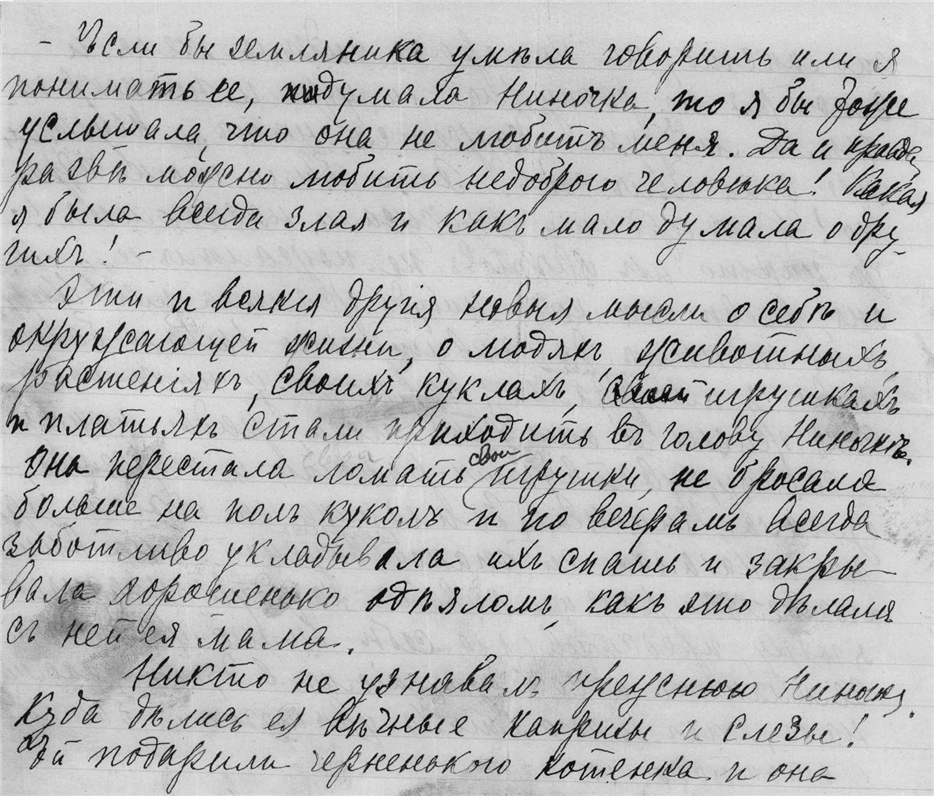 - Если бы земляника умѣла говорить или я
понимать ее, подумала Ниночка, то я бы тоже
услышала, что она не любитъ меня. Да и правда
развѣ можно любить недоброго человѣка! Какая
я была всегда злая и какъ мало думала о дру-
гихъ! -
Эти и всякія другія новыя мысли о себѣ и
окружающей жизни, о людяхъ, животныхъ,
растеніяхъ, своихъ куклахъ, игрушкахъ
и платьяхъ стали приходить въ голову Ниночкѣ.
Она перестала ломать свои игрушки, не бросала
больше на полъ куколъ и по вечерамъ всегда
заботливо укладывала ихъ спать и закры-
вала хорошенько одѣяломъ, какъ это дѣлала
съ ней ея мама.
Никто не узнавалъ прежнюю Ниночку.
Куда дѣлись ея вѣчные капризы и слезы!
Ей подарили черненького котенка и она